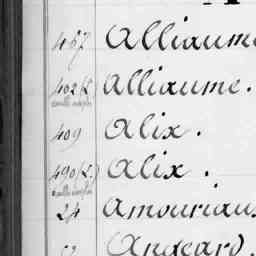 467 Alliaume
402 (L Alliaume.
409 Alix.
490 (L.) Alix.
24 Amouriaux
Angeard.